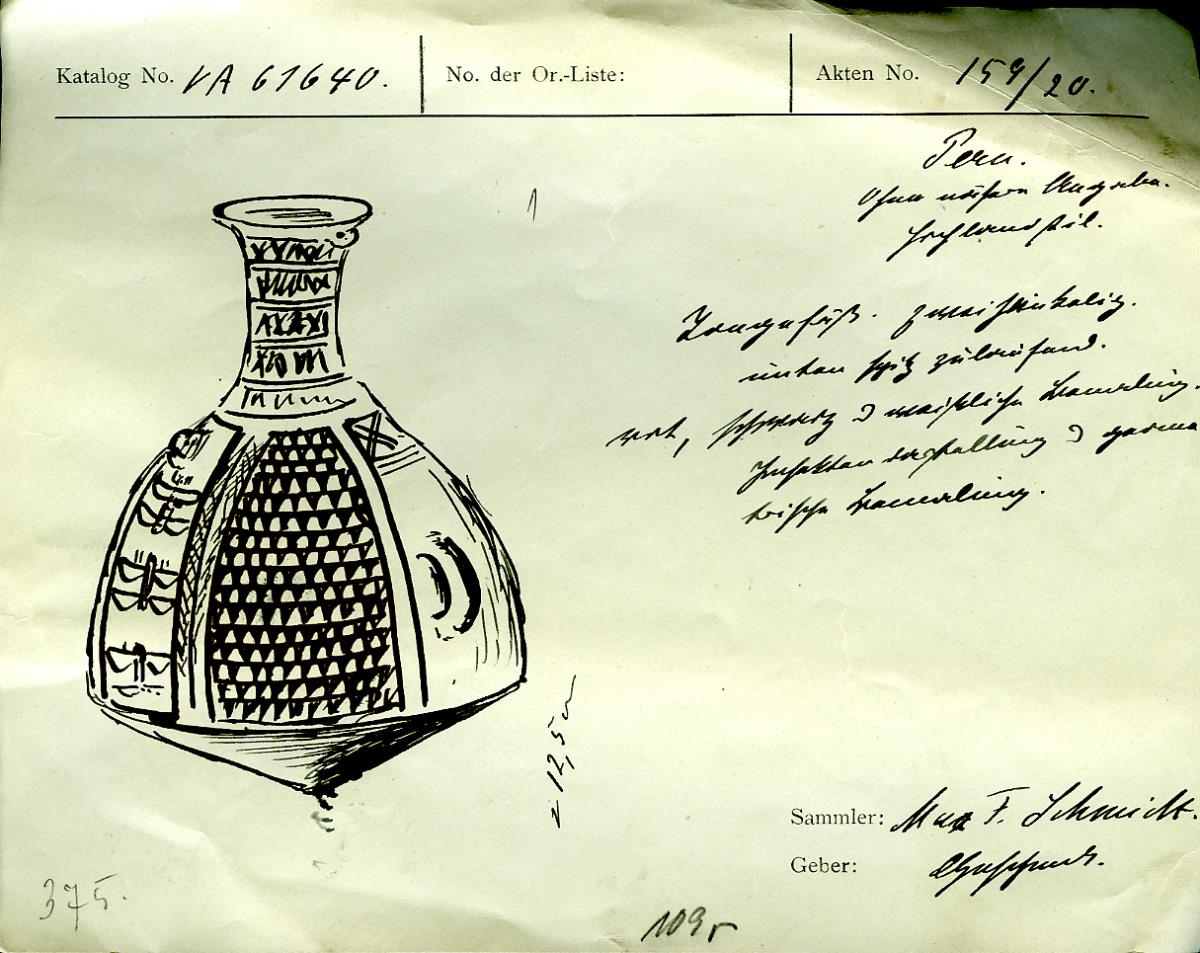 Katalog No. VA 61640.
No. der Or.-Liste:
Akten No. 159/20.
Peru.
Ohne nähere Angabe.
Hochlandstil.
Tongefäß. zweihenkelig.
unten spitz zulaufend.
rot, schwarz & weißliche Bemalung.
Insektendarstellung & geome
trische Bemalung.
12,5
Sammler: Max F. Schmidt.
Geber: Geschenk.
375.
109